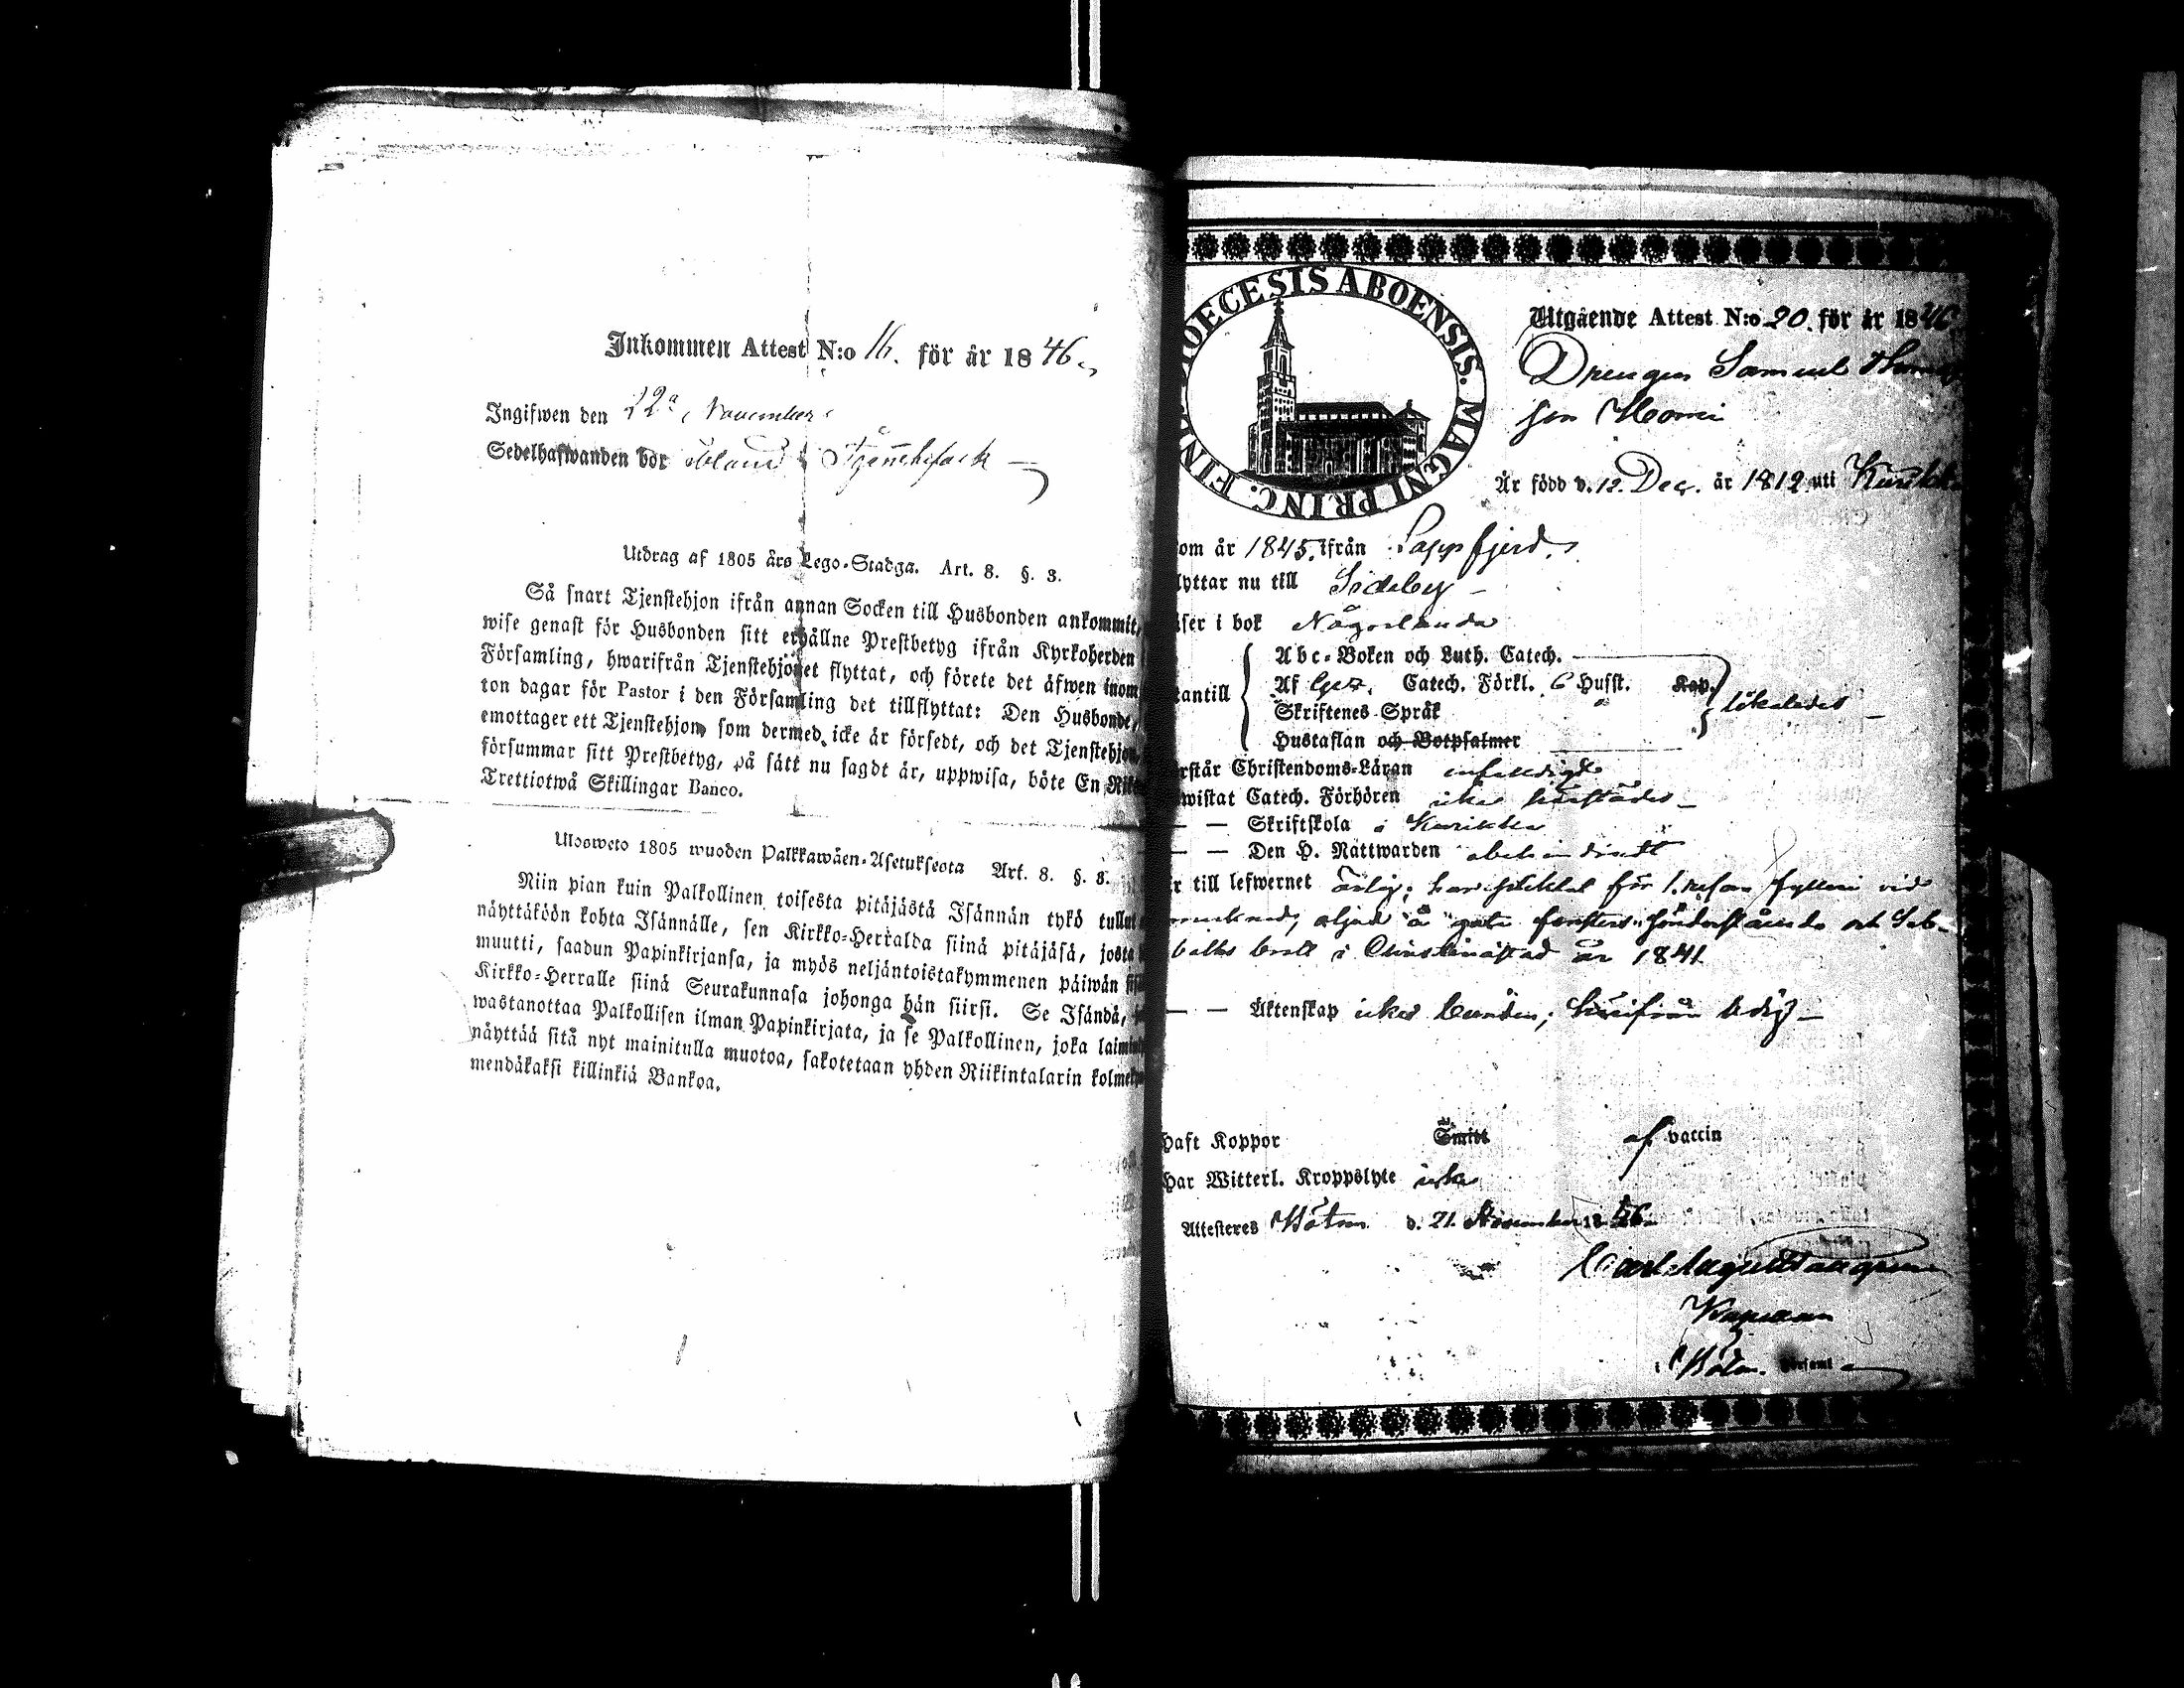 Inkommen Attest N:o 16. för år 1846.
Ingifwen den 22a November
Sedelhafwanden bor
Utdrag af 1805 års Lego-Stadga. Art. 8. §. 3.
Så snart Tjenstehjon ifrån annan Socken till Husbonden ankommit,
wise genast för Husbonden sitt erhållne Prestbetyg ifrån Kyrkoherden
Församling, hwarifrån Tjenstehjonet flyttat, och förete det äfwen inom
ton dagar för Pastor i den Församling det tillflyttat: Den Husbonde,
emottager ett Tjenstehjon, som dermed icke är försedt, och det Tjenstehjon,
försummar sitt Prestbetyg, på sätt nu sagdt är, uppwisa, böte En
Trettiotwå Skillingar Banco.
Ulosweto 1805 wuoden Palkkawäen-Asetuksesta Art. 8. §. 3.
Niin pian kuin Palkollinen toisesta pitäjästä Isännän tykö tullut
näyttäköön kohta Isännälle, sen Kirkko-Herralda siinä pitäjäsä, josta
muutti, saadun Papinkirjansa, ja myös neljäntoistakymmenen päiwän
Kirkko-Herralle siinä Seurakunnasa johonga hän siirsi. Se Isändä,
wastanottaa Palkollisen ilman Papinkirjata, ja se Palkollinen, joka
näyttää sitä nyt mainitulla muotoa, sakotetaan yhden Riikintalarin
mendäkaksi killinkiä Bankoa.
DIOECESIS ABOENSIS. MAGNI PRINC. FINL
Utgående Attest N:o 20. för år 1846
Drengen Samuel
son
Är född d. 12. Dec. år 1819 uti
om år 1845. ifrån Lappfjerd.
lyttar nu till Sideby
äser i bok Någorlunda
antill
Abc-Boken och Luth. Catech.
Af Catech. Förkl. 6 Husst. Kap.
Skriftenes Språk
Hustaflan och Botpsalmer
likaledes
rstår Christendoms-Läran enfaldigt
wistat Catech. Förhören icke härstädes
— — Skriftskola i Kurikka
— — Den H. Nattwarden obehindradt
r till lefwernet ärlig; har för 1. resan fylleri vid
marknad, oljud å gata och Sab-
baths brott i Christinæstad år 1841
— — Äktenskap icke bunden; härifrån ledig
Haft Koppor Smitt af vaccin
Har Witterl. Kroppslyte icke
Attesteres d. 21. November 1846
Carl August
Kapellan
i församl